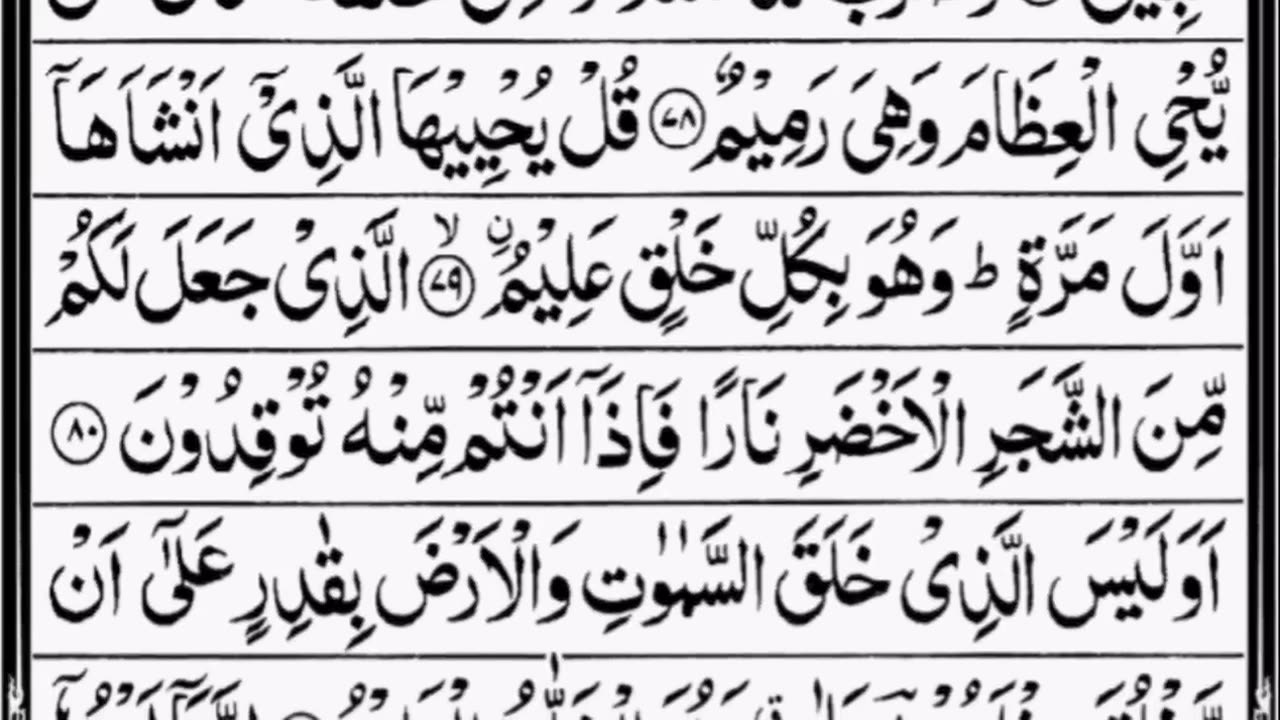 يُّحْىِ الْعِظَامَ وَهِىَ رَمِيْمٌ ﴿۷۸﴾ قُلْ يُحْيِيْهَا الَّذِىْۤ اَنْشَاَهَاۤ
اَوَّلَ مَرَّةٍ ؕ وَهُوَ بِكُلِّ خَلْقٍ عَلِيْمُ ۨ ۙ ﴿۷۹﴾ الَّذِىْ جَعَلَ لَكُمْ
مِّنَ الشَّجَرِ الْاَخْضَرِ نَارًا فَاِذَاۤ اَنْتُمْ مِّنْهُ تُوْقِدُوْنَ ﴿۸۰﴾
اَوَلَيْسَ الَّذِىْ خَلَقَ السَّمٰوٰتِ وَالْاَرْضَ بِقٰدِرٍ عَلٰٓى اَنْ